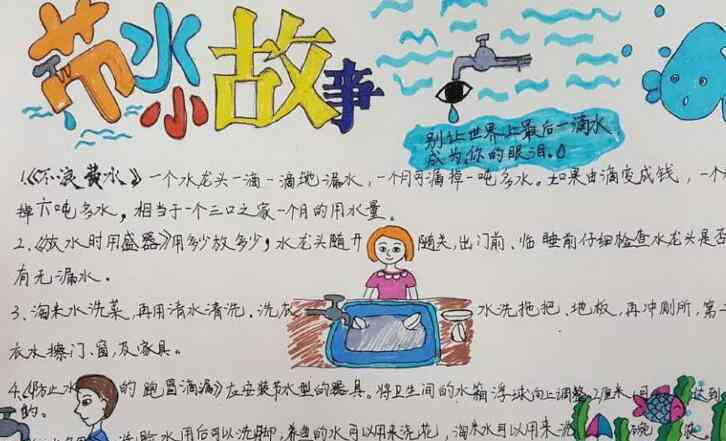 节水小故事
别让世界上最后一滴水
成为你的眼泪。
1.《不浪费水》一个水龙头一滴一滴地漏水,一个月可漏掉一吨多水。如果由滴变成线,一个
掉六吨多水,相当于一个三口之家一个月的用水量。
2.《放水时用盛器》用多少放多少;水龙头随开随关,出门前、临睡前仔细检查水龙头是否
有无漏水。
3、淘米水洗菜,再用清水清洗。洗 水洗拖把、地板,再冲厕所,第二
衣水擦门、窗,及家具。
4.《防止水 的跑冒滴漏》 安装节水型的器具。将卫生间的水箱浮球向上调整2厘米, 达到
的。
洗脸水用后可以洗脚, 养鱼的水可以用来浇花,淘米水可以用来洗 碗